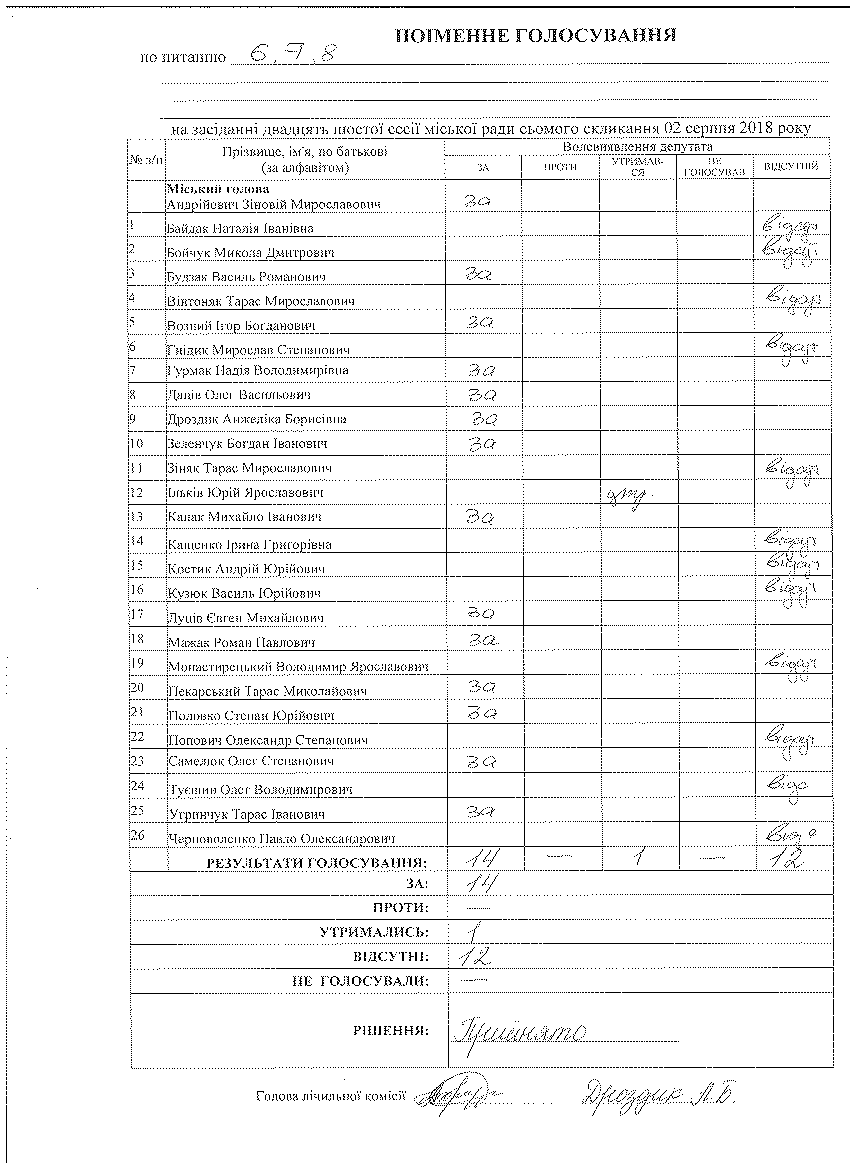 ПОІМЕННЕ ГОЛОСУВАННЯ
по питанню 6, 7, 8
на засіданні двадцять шостої сесії міської ради сьомого скликання 02 серпня 2018 року
№ з/п Прізвище, ім'я, по батькові (за алфавітом) Волевиявлення депутата
ЗА ПРОТИ УТРИМАВ-СЯ НЕ ГОЛОСУВАВ ВІДСУТНІЙ
Міський голова
Андрійович Зіновій Мирославович за
1 Байдак Наталія Іванівна
2 Бойчук Микола Дмитрович
3 Будзак Василь Романович за
4 Вівтоняк Тарас Мирославович
5 Возний Ігор Богданович за
6 Гнідик Мирослав Степанович
7 Гурмак Надія Володимирівна за
8 Даців Олег Васильович за
9 Дроздик Анжеліка Борисівна за
10 Зеленчук Богдан Іванович за
11 Зіняк Тарас Мирославович
12 Ільків Юрій Ярославович утр.
13 Капак Михайло Іванович за
14 Кащенко Ірина Григорівна
15 Костик Андрій Юрійович
16 Кузюк Василь Юрійович
17 Луців Євген Михайлович за
18 Мажак Роман Павлович за
19 Монастирецький Володимир Ярославович
20 Пекарський Тарас Миколайович за
21 Половко Степан Юрійович за
22 Попович Олександр Степанович
23 Самелюк Олег Степанович за
24 Олег Володимирович відс
25 Утринчук Тарас Іванович за
26 Черноволенко Павло Олександрович
РЕЗУЛЬТАТИ ГОЛОСУВАННЯ: 14 — 1 — 12
ЗА: 14
ПРОТИ: —
УТРИМАЛИСЬ: 1
ВІДСУТНІ: 12
НЕ ГОЛОСУВАЛИ: —
РІШЕННЯ: Прийнято
Голова лічильної комісії Дроздик А.Б.